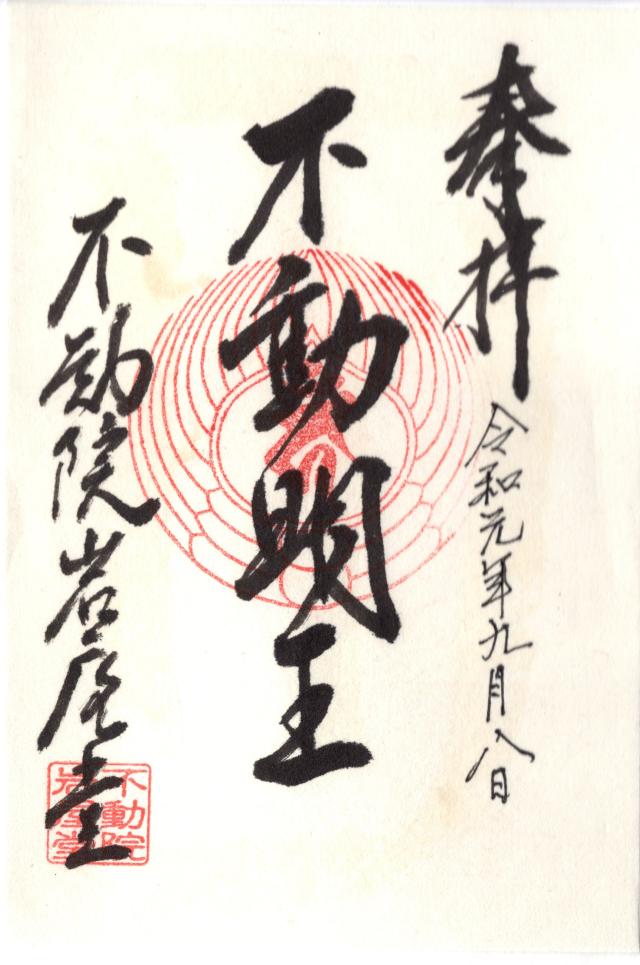 奉拝 令和元年九月八日
不動明王
不動院岩屋堂
不動院
岩屋堂